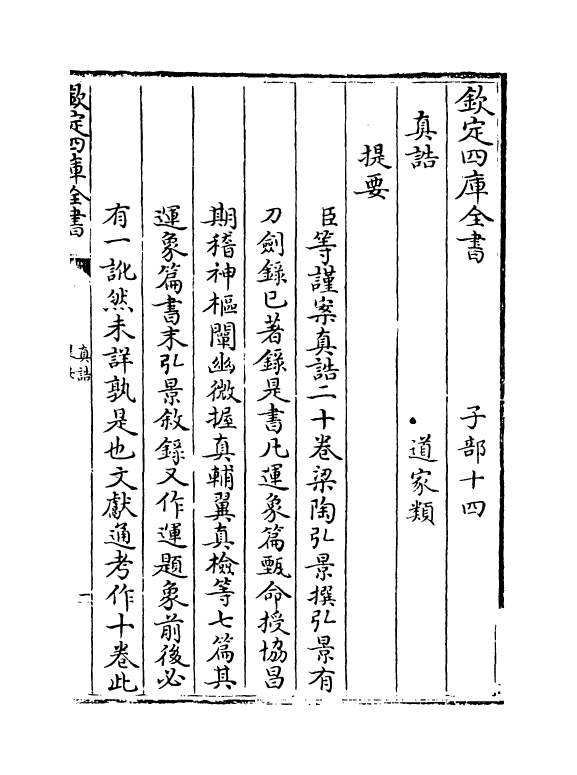 欽定四庫全書　子部十四
真誥　道家類
提要
臣等謹案真誥二十卷梁陶弘景撰弘景有
刀劍錄已著錄是書凡運象篇甄命授協昌
期稽神樞闡幽微握真輔翼真檢等七篇其
運象篇書末弘景敘錄又作運題象前後必
有一訛然未詳孰是也文獻通考作十卷此
欽定四庫全書
真誥